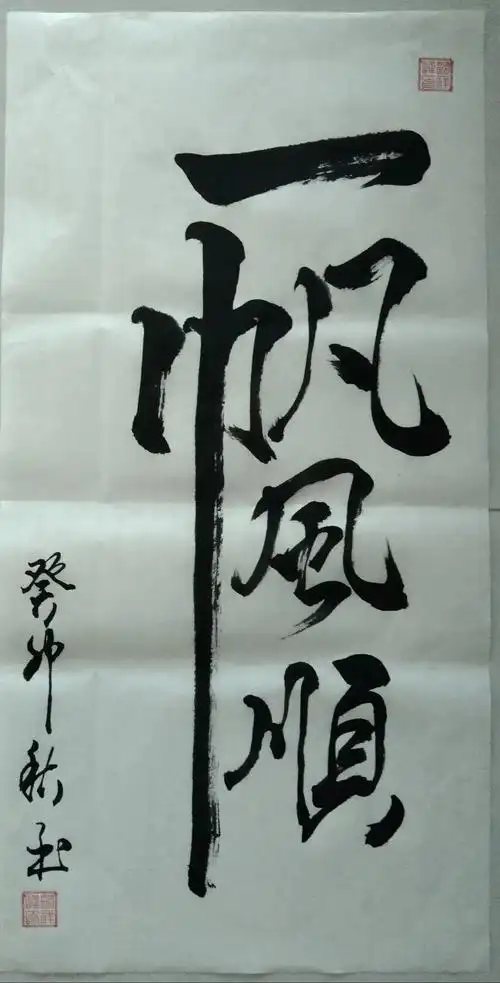 一帆風順
癸卯秋